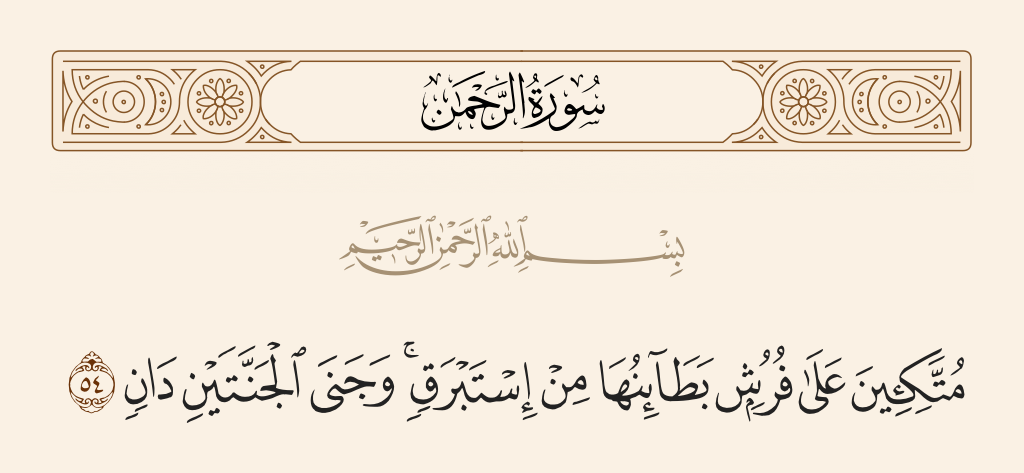 سُورَةُ الرَّحْمَٰن
بِسْمِ ٱللَّهِ ٱلرَّحْمَٰنِ ٱلرَّحِيمِ
مُتَّكِـِٔينَ عَلَىٰ فُرُشٍۭ بَطَآئِنُهَا مِنْ إِسْتَبْرَقٍۢ ۚ وَجَنَى ٱلْجَنَّتَيْنِ دَانٍۢ ٥٤